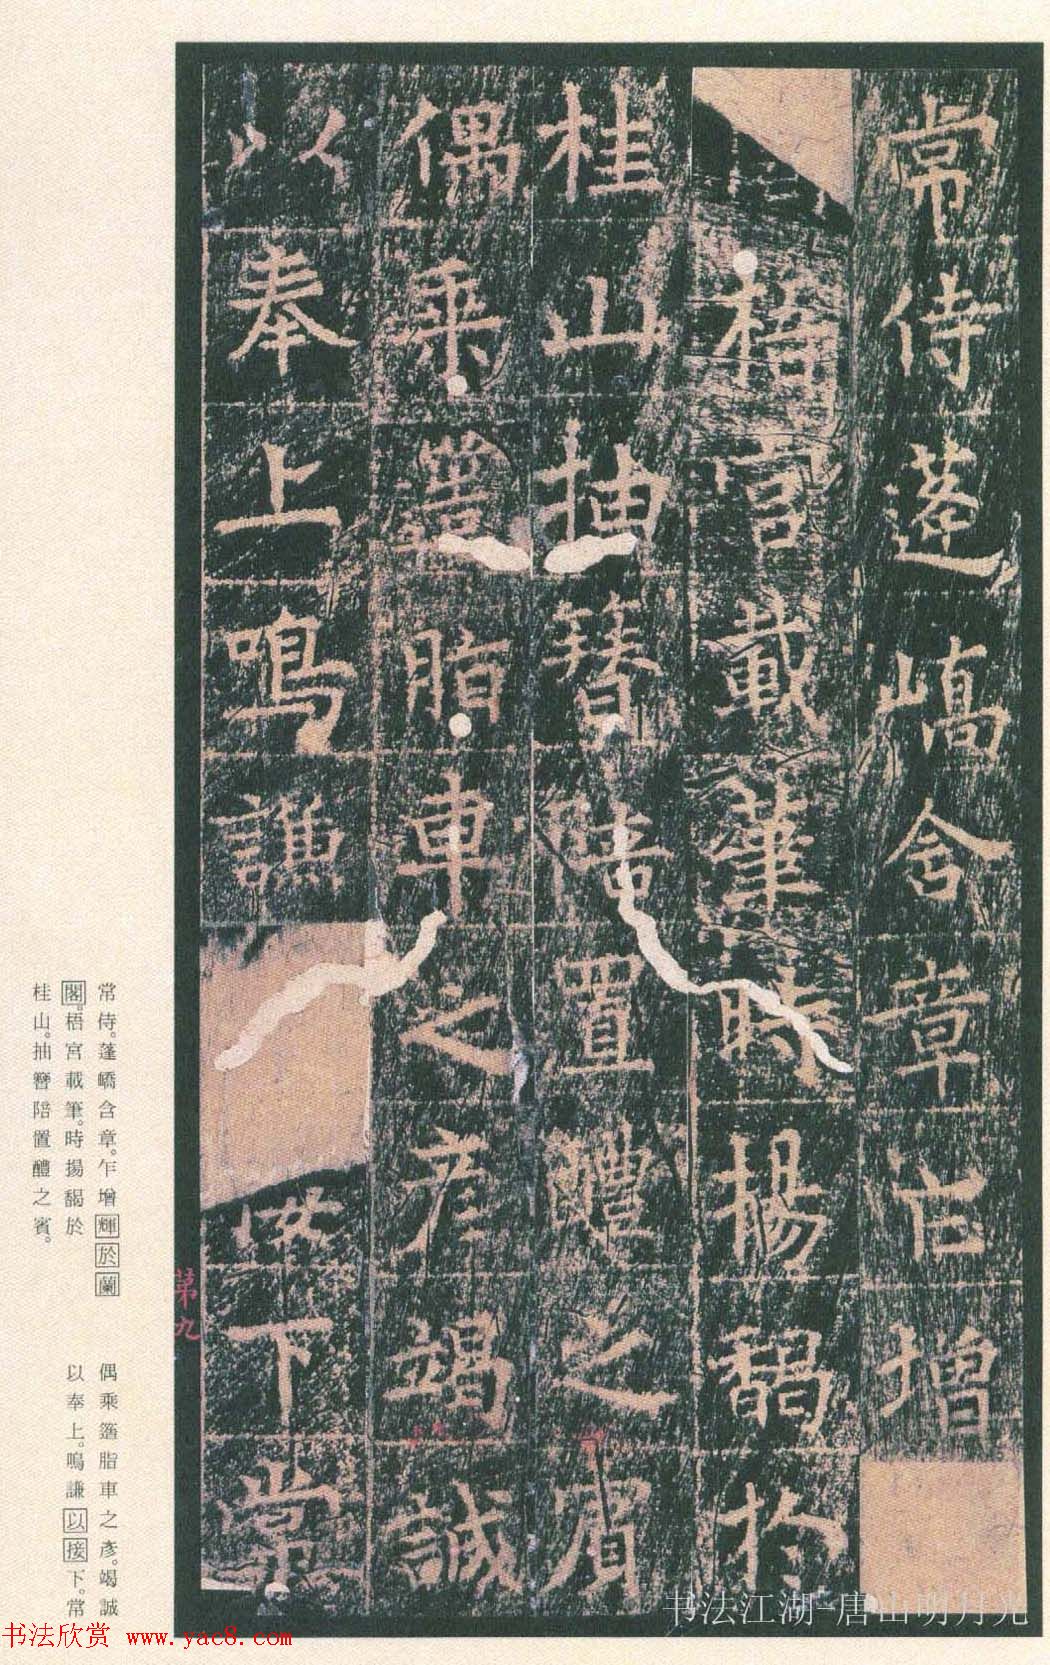 常侍蓬嶠含章乍增
梧宮載筆時揚馤於
桂山抽簪陪置醴之賓
偶乘簉脂車之彥竭誠
以奉上鳴謙接下常
常侍。蓬嶠含章。乍增輝於蘭
閣。梧宮載筆。時揚馤於
桂山。抽簪陪置醴之賓。
偶乘簉脂車之彥。竭誠
以奉上。鳴謙以接下。常
第九
书法江湖-唐山明月光
书法欣赏 www.yac8.com